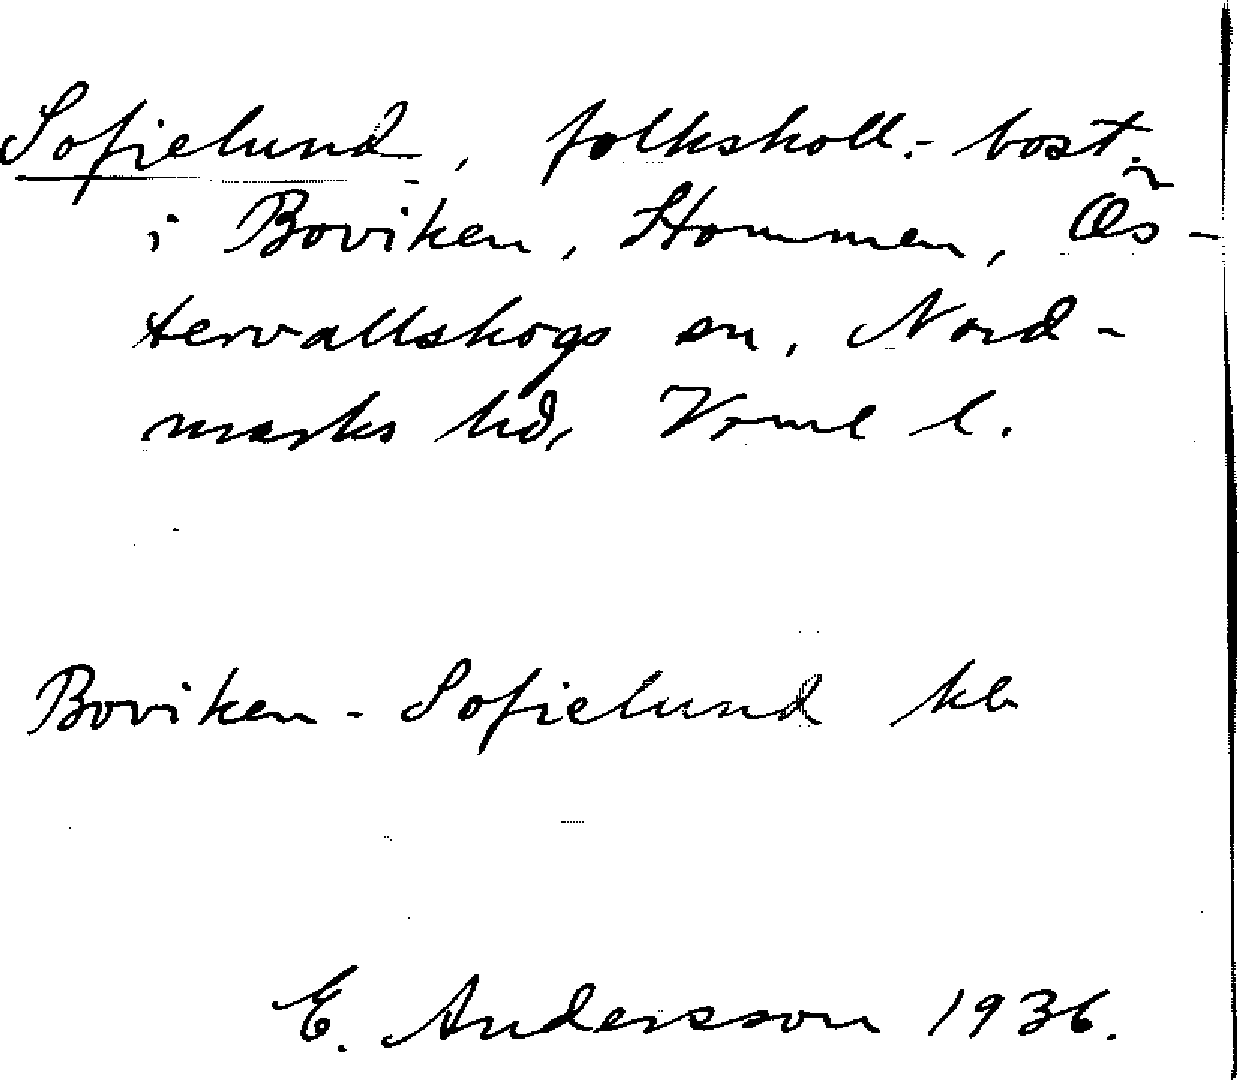 Sofielund, folkskoll.-bost.
i Boviken, Hommen, Ös-
tervallskogs sn, Nord-
marks hd, Vrml l.
Boviken - Sofielund
E. Andersson 1936.